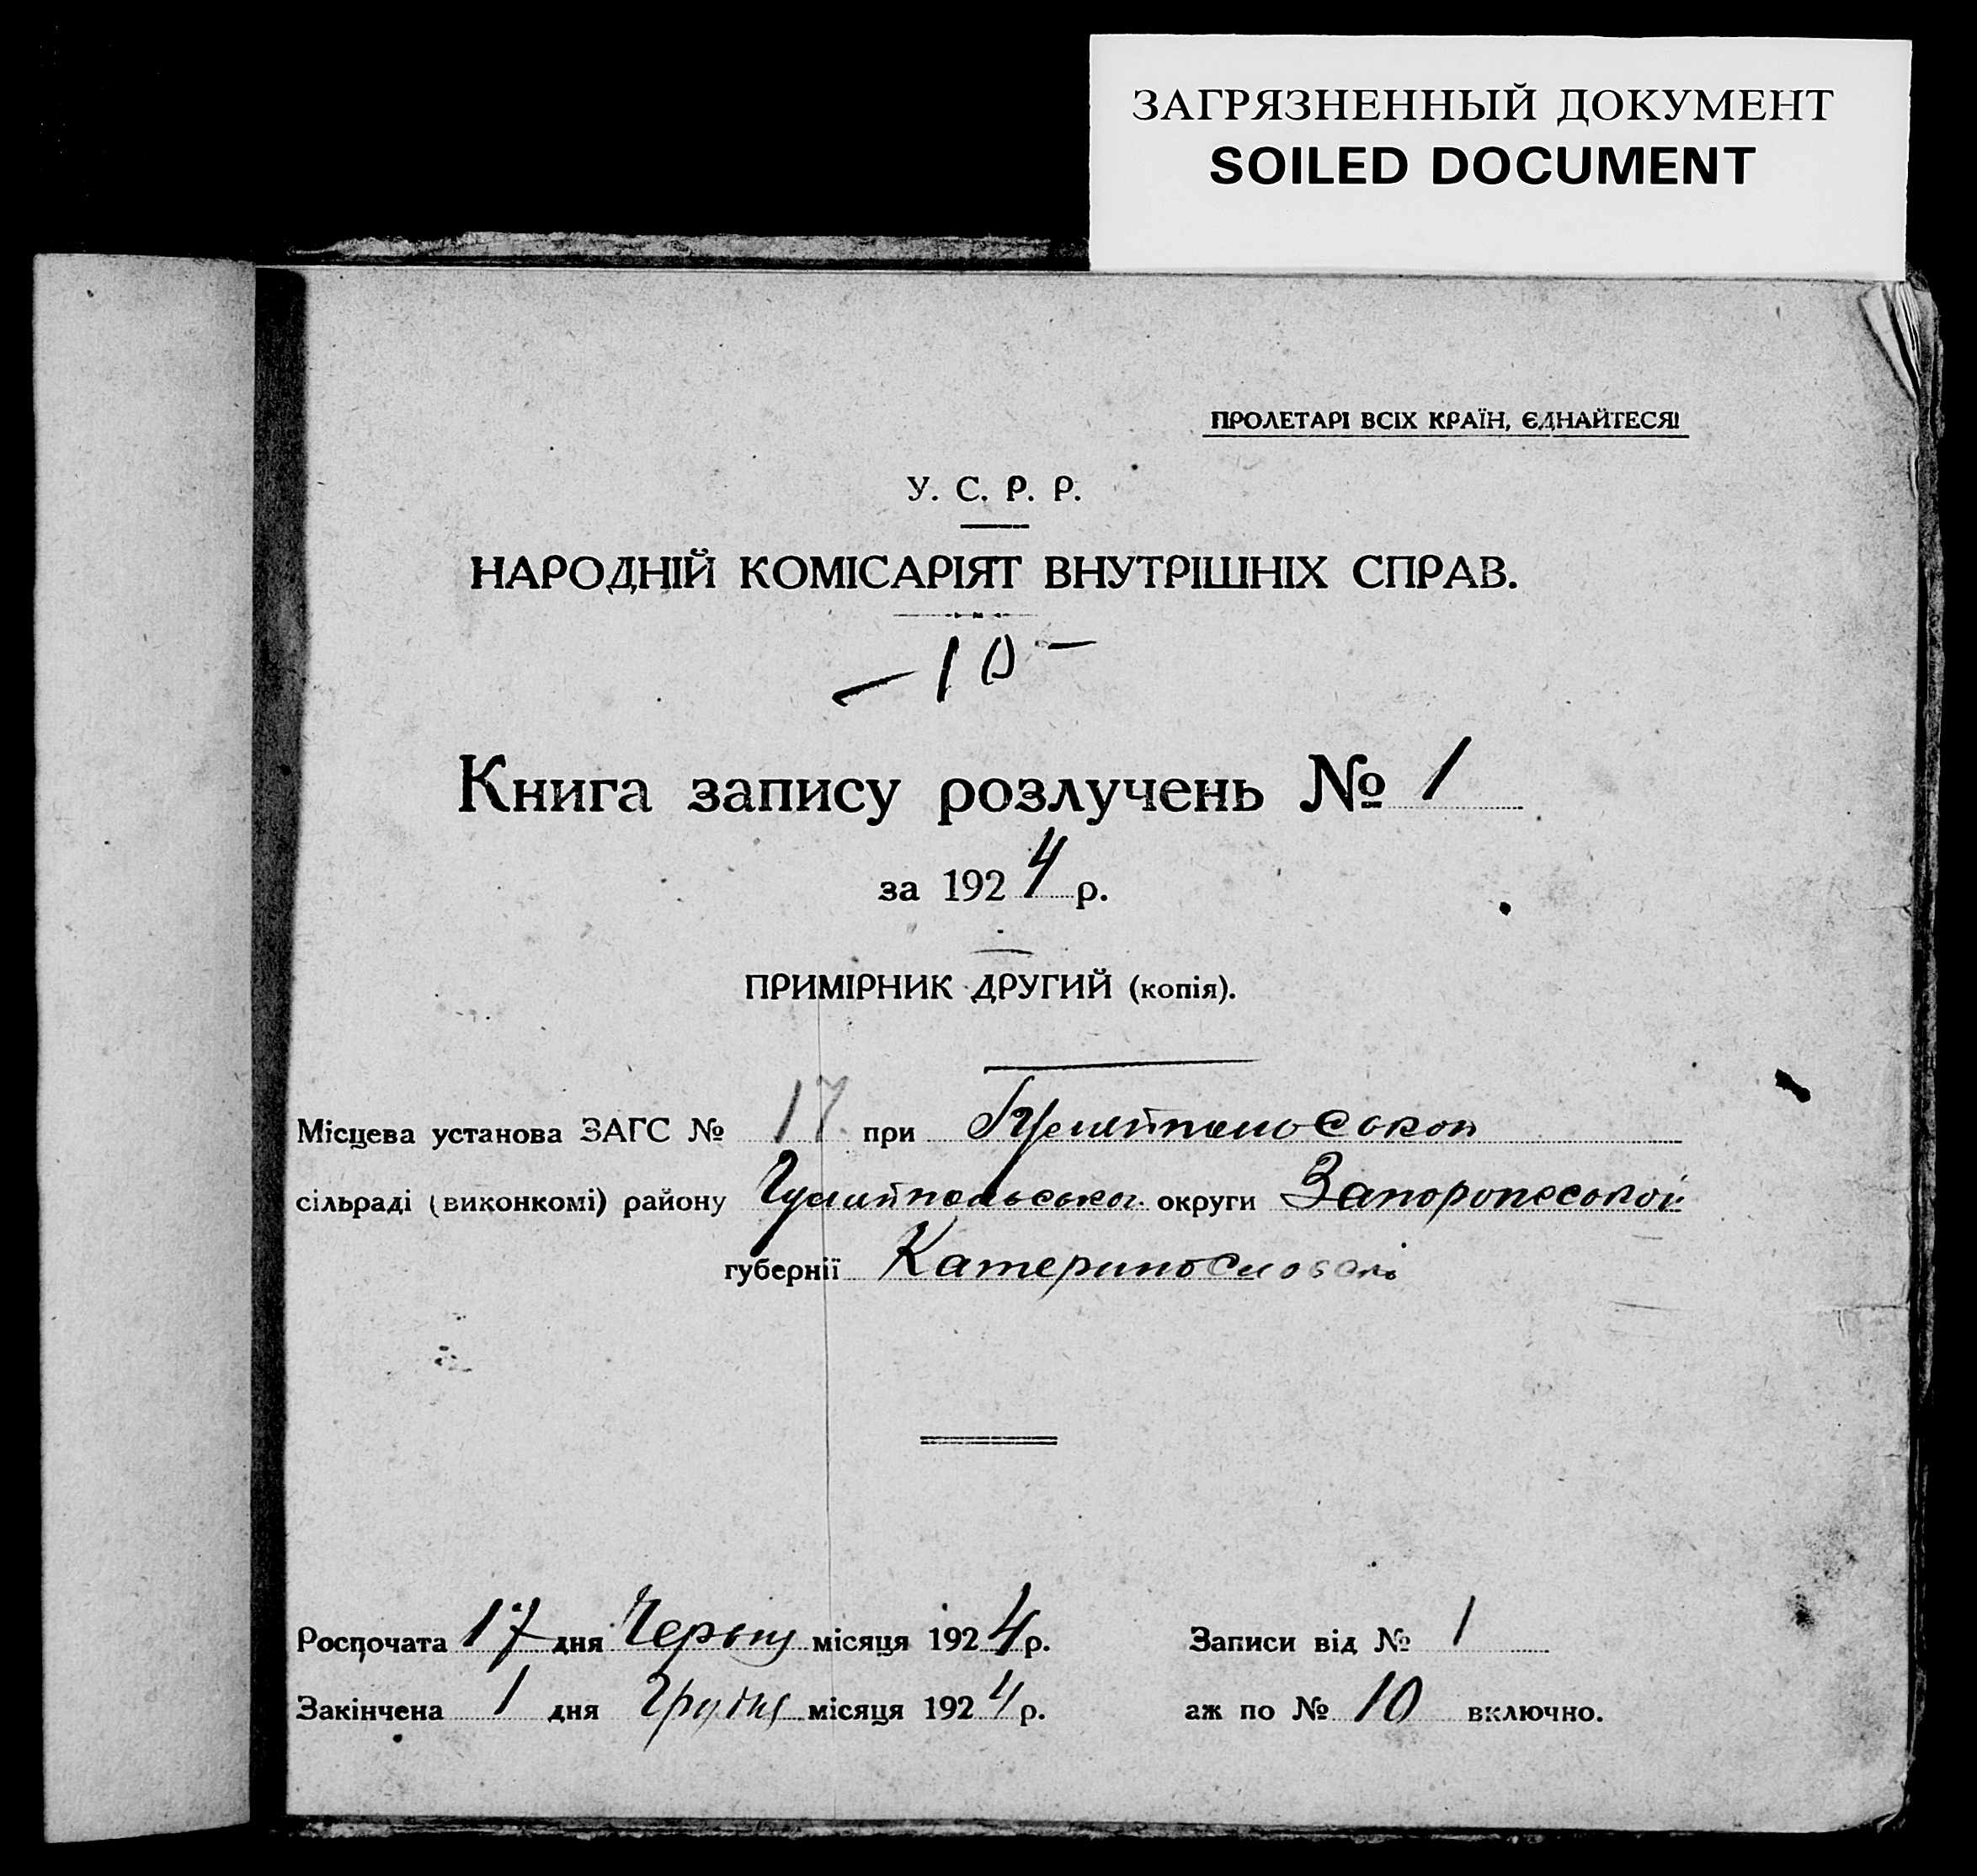 ЗАГРЯЗНЕННЫЙ ДОКУМЕНТ
SOILED DOCUMENT
ПРОЛЕТАРІ ВСІХ КРАЇН, ЄДНАЙТЕСЯ!
У. С. Р. Р.
НАРОДНІЙ КОМІСАРІЯТ ВНУТРІШНІХ СПРАВ.
— 10 —
Книга запису розлучень № 1
за 1924 р.
ПРИМІРНИК ДРУГИЙ (копія).
Місцева установа ЗАГС № 17 при
сільраді (виконкомі) району округи
губернії
Роспочата 17 дня Червня місяця 1924 р. Записи від № 1
Закінчена 1 дня Грудня місяця 1924 р. аж по № 10 включно.